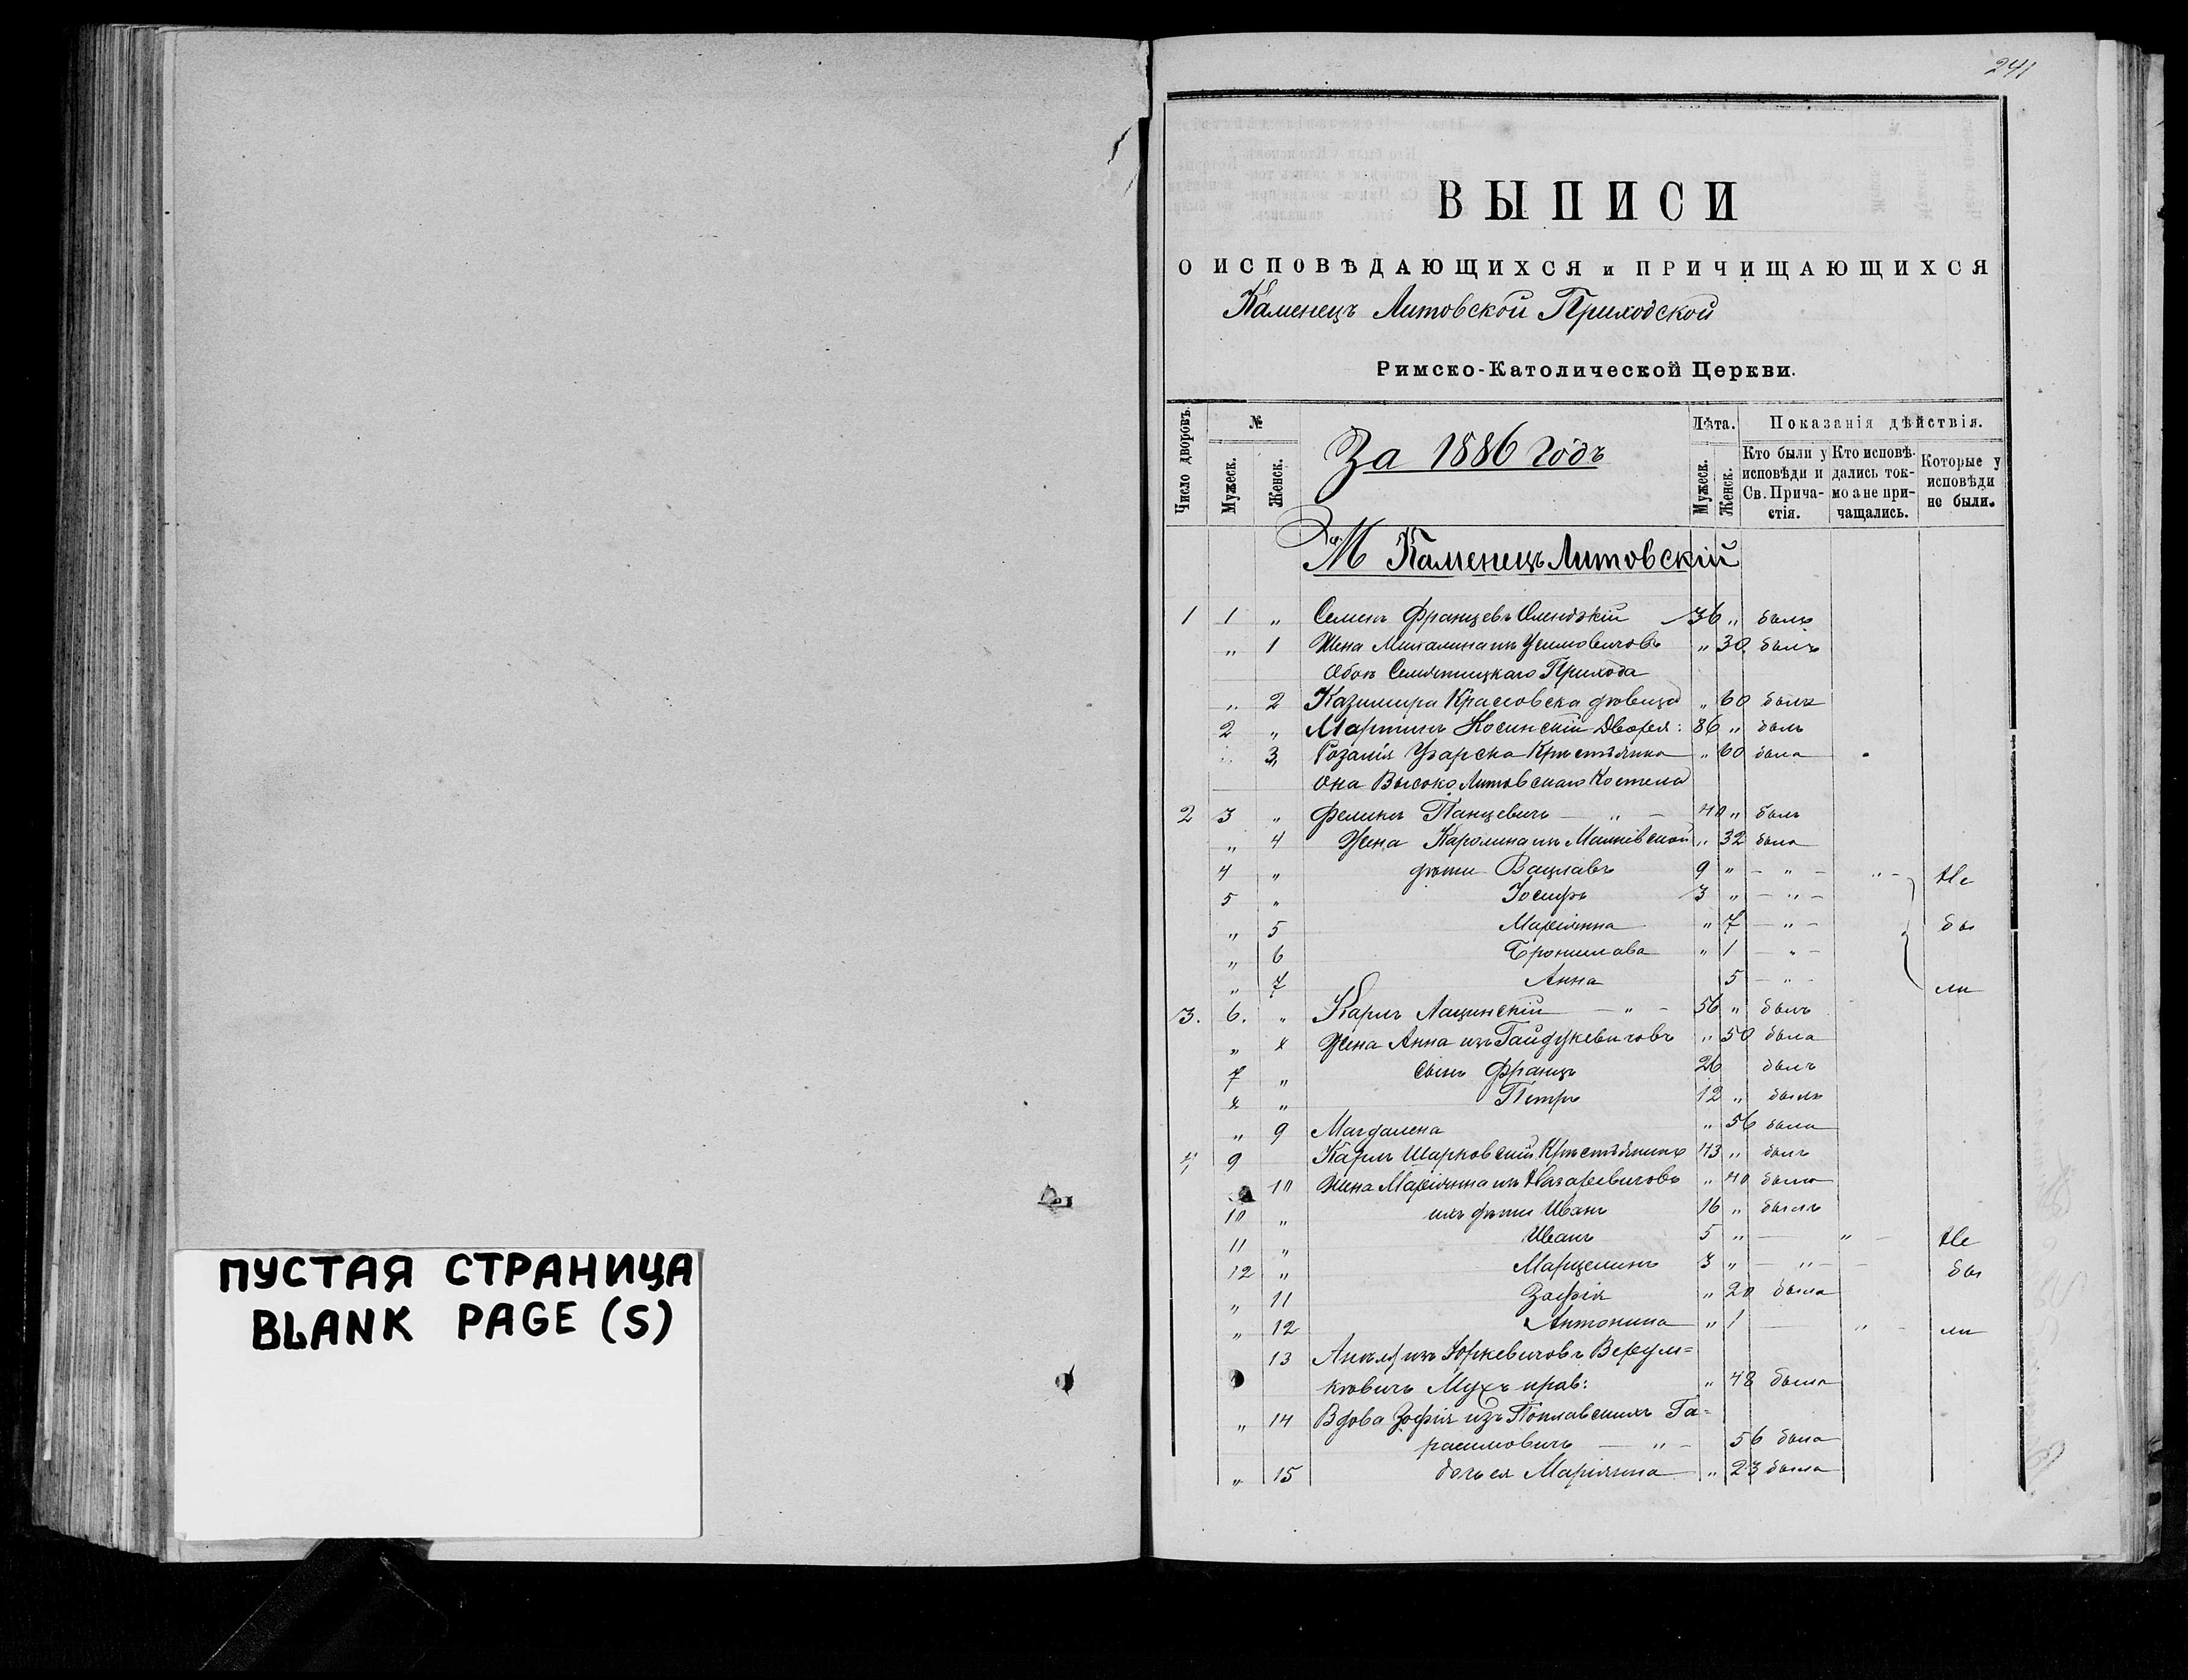 ПУСТАЯ СТРАНИЦА
BLANK PAGE (S)
241
ВЫПИСИ
О ИСПОВѢДАЮЩИХСЯ и ПРИЧИЩАЮЩИХСЯ
Каменецъ Литовской Приходской
Римско-Католической Церкви.
Число дворовъ. № Мужеск. Женск. За 1886 годъ Лѣта. Мужеск. Женск. Показанія дѣйствія.
Кто были у исповѣди и Св. Причастія. Кто исповѣдались токмо а не причащались. Которые у исповѣди не были.
М Каменецъ Литовскій
1 1 „ Семенъ Францевъ 36 „ былъ
„ 1 Жена Михалина изъ „ 30 былъ
Обои Семятицкаго Прихода
„ 2 Казимира Крассовска „ 60 былъ
2 „ Мартинъ Косинскій Дворян: 86 „ былъ
„ 3 Розалія Крестьянка „ 60 была
Она Высоко Литовскаго Костела
2 3 „ Феликъ Панцевичъ — „ — 40 „ былъ
„ 4 Жена Каролина изъ „ 32 была
4 „ дѣти Вацлавъ 9 „ — „ — „ — Не
5 „ Іосифъ 3 „ — „ —
„ 5 Маріянна „ 7 — „ — бы
„ 6 Брониславa „ 1 — „ —
„ 7 Анна 5 — „ — ли
3. 6. „ Карлъ Лащинскій — „ — 56 „ былъ
„ 8 Жена Анна изъ Гайдукевичовъ „ 50 была
7 „ Сынъ Францъ 26 былъ
8 „ Петръ 12 „ былъ
„ 9 Магдалена „ 56 была
4 9 Карлъ Шарковскій Крестьянинъ 43 „ былъ
10 Жена Маріянна изъ Назаревичовъ „ 40 была
10 „ ихъ дѣти Иванъ 16 „ былъ
11 „ Иванъ 5 „ — „ — Не
12 „ Марцелинъ 3 „ — „ — бы
„ 11 Зофія „ 20 была
„ 12 Антонина „ 1 — „ — ли
13 изъ Юркевичовъ
Мухъ „ 48 была
„ 14 Вдова Зофія изъ Поплавскихъ Га=
расимовичъ — „ — 56 была
„ 15 дочь ея Маріянна „ 23 была